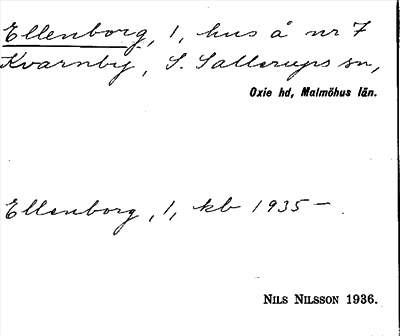 Ellenborg, 1, hus å nr 7
Kvarnby, S. Sallerups sn,
Oxie hd, Malmöhus län.
Ellenborg, 1, kb 1935 —
NILS NILSSON 1936.